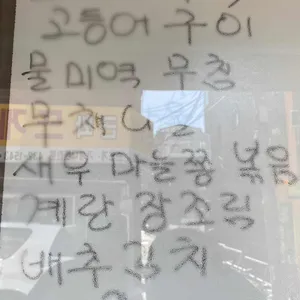 고등어 구이
물미역 무침
무채나물
새우 마늘쫑 볶음
계란 장조림
배추김치